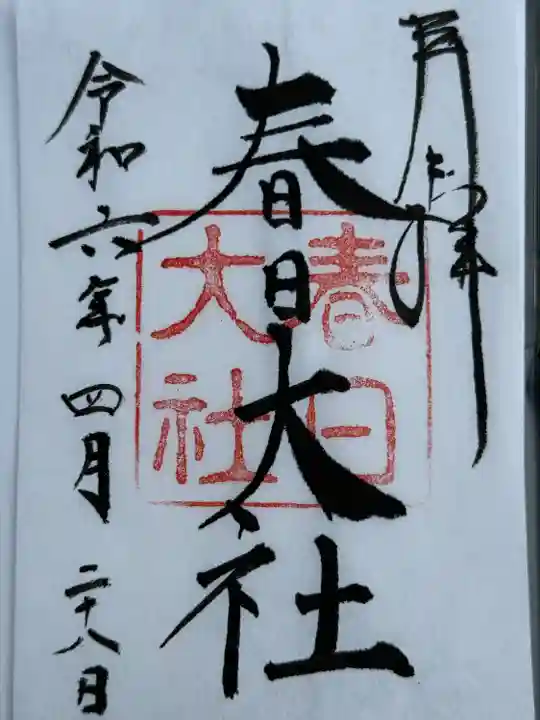 奉拝
春日大社
春日大社
令和六年四月二十八日